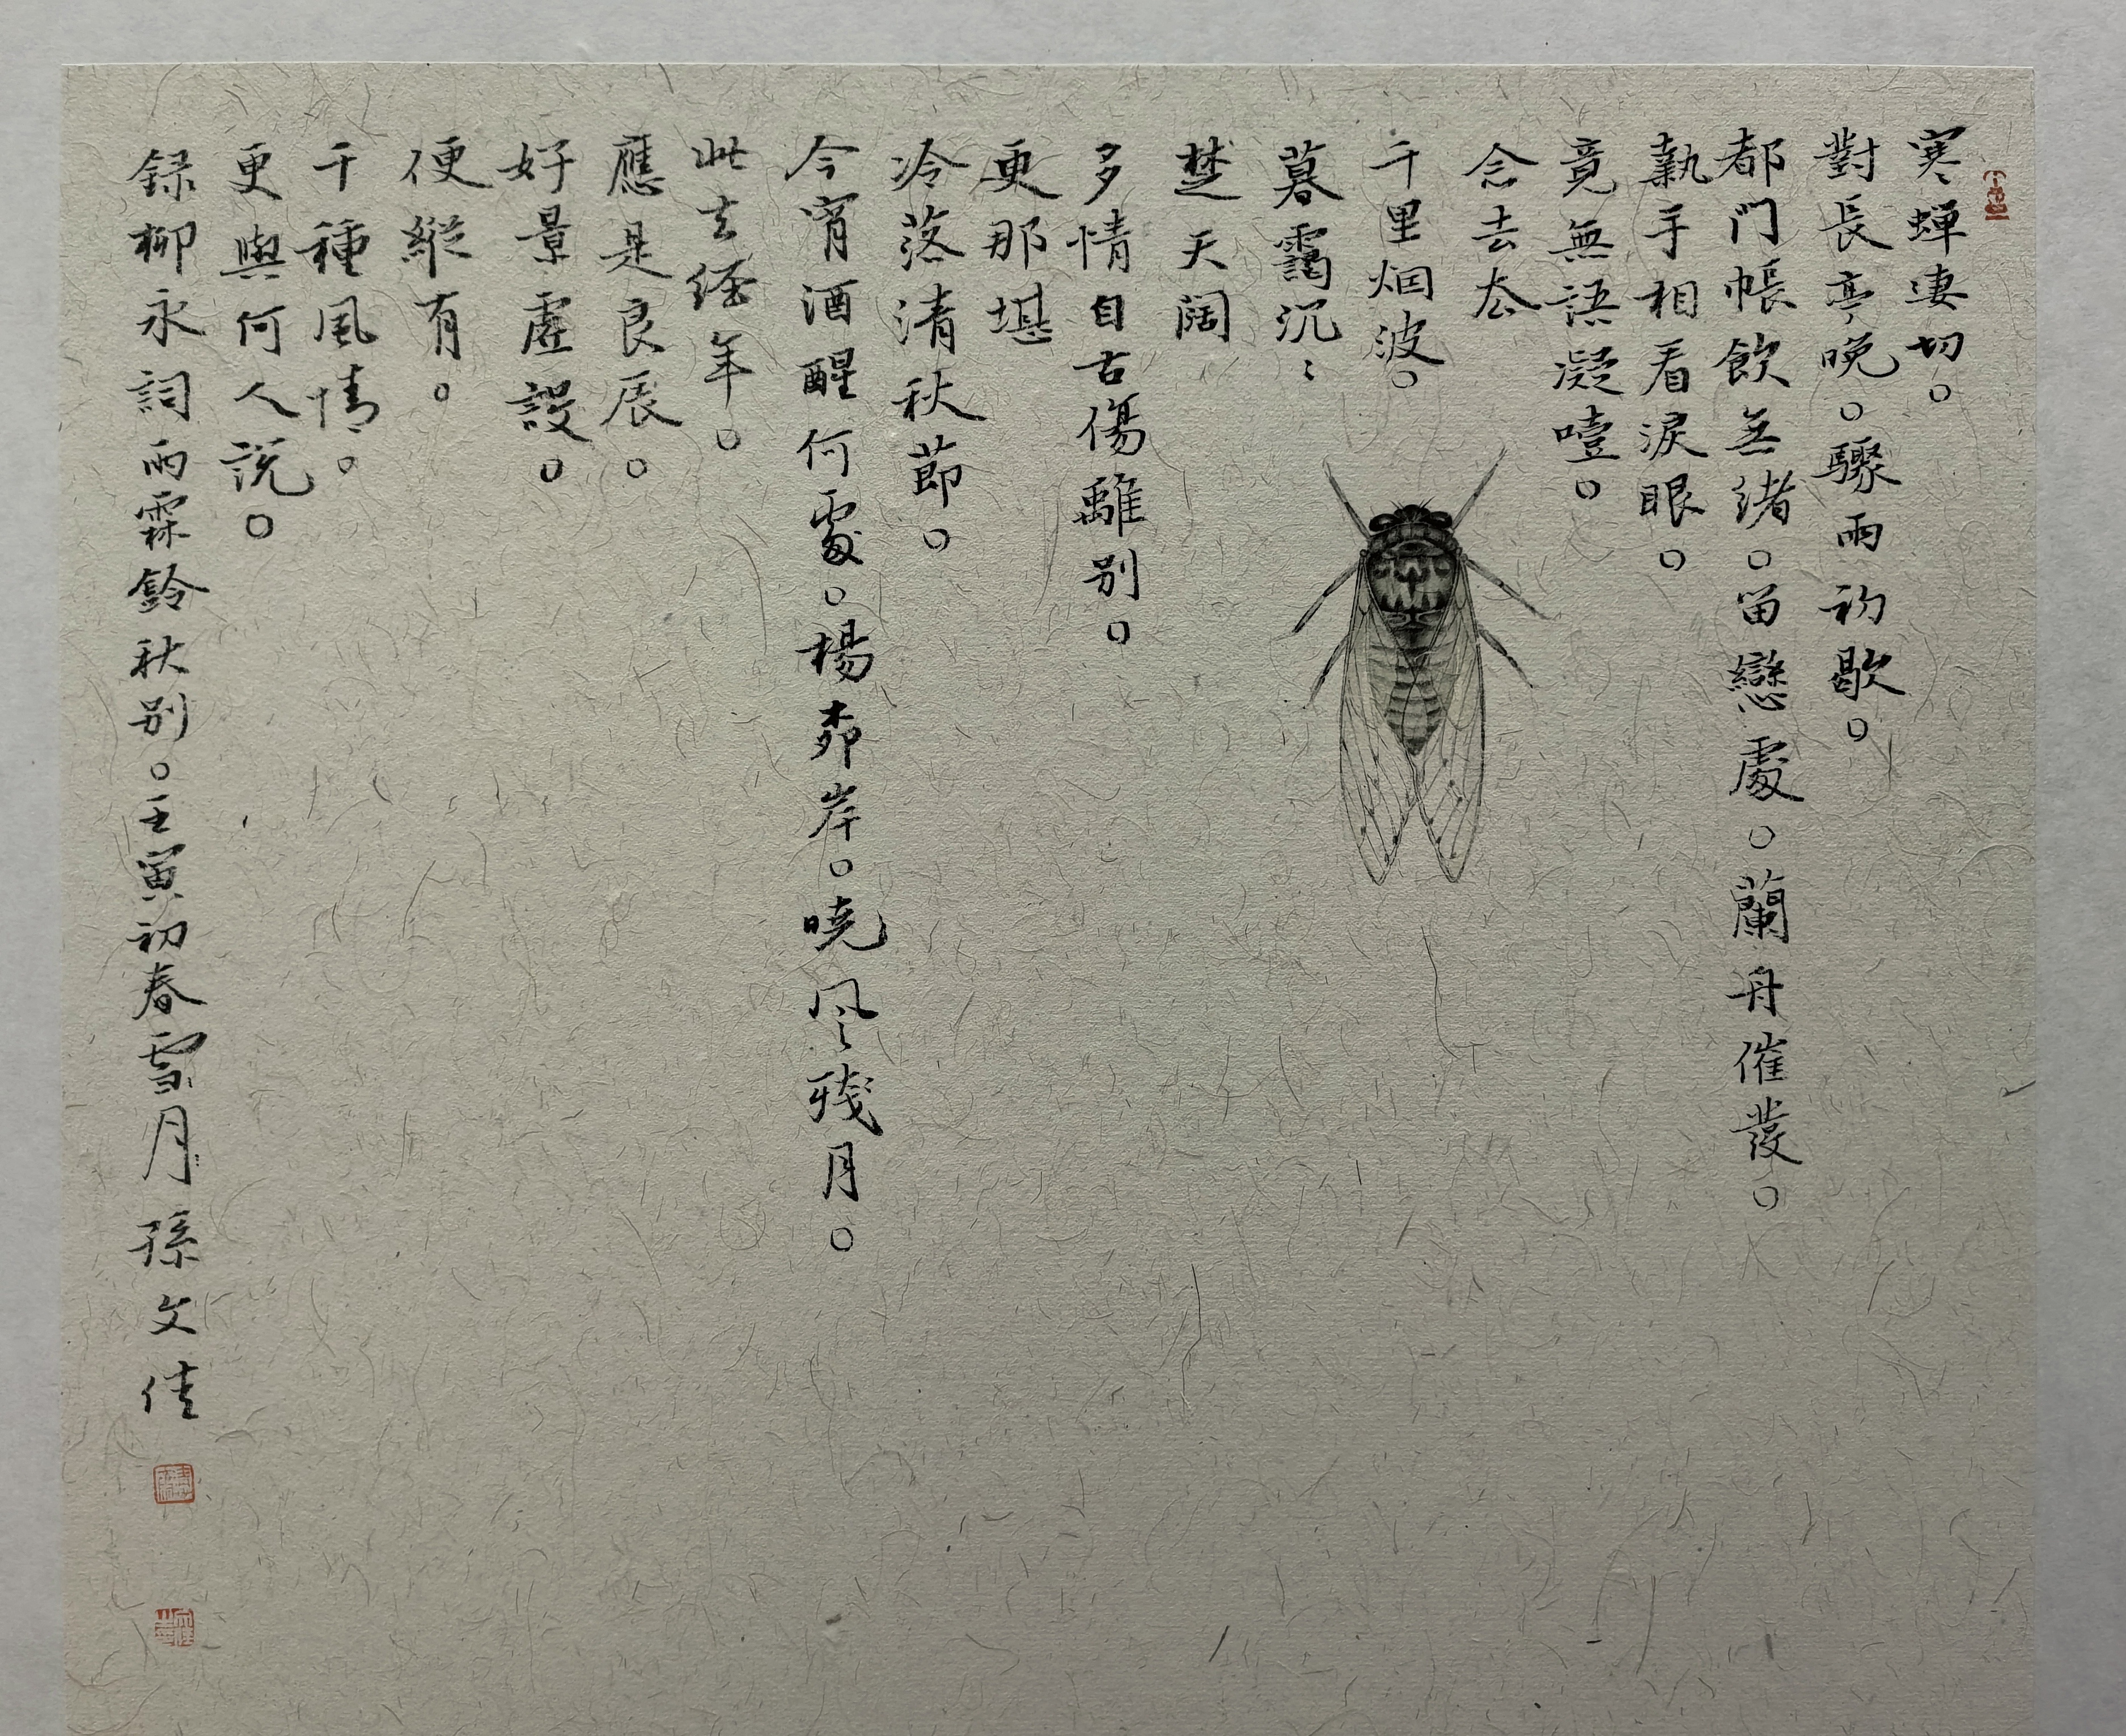 寒蟬凄切。
對長亭晚。驟雨初歇。
都門帳飲無緒。留戀處。蘭舟催發。
執手相看淚眼。
竟無語凝噎。
念去去
千里烟波。
暮靄沉〻
楚天闊
多情自古傷離别。
更那堪
冷落清秋節。
今宵酒醒何處。楊柳岸。曉風殘月。
此去經年。
應是良辰。
好景虛設。
便縱有。
千種風情。
更與何人説。
録柳永詞雨霖鈴秋别。壬寅初春雪月孫文佳